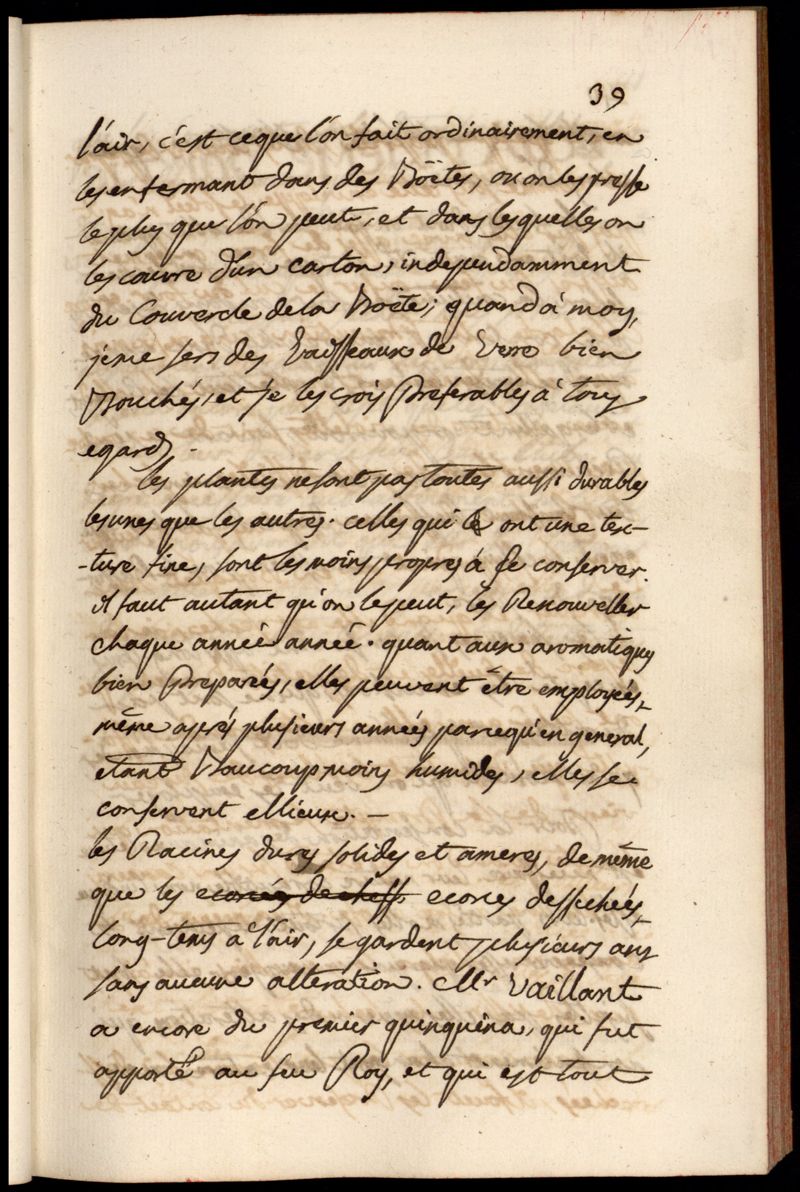 39
l'air, c'est ceque l'on fait ordinairement, en
les enfermant dans des Boëtes, ou on les presse
le plus que l'on peut, et dans lesquelles on
les couvre d'un carton, independamment
du Couvercle de la Boëte; quand à moy,
je me sers des Vaisseaux de Verre bien
Bouchés, et je les crois Preferables à tous
egards.
les plantes ne sont pas toutes aussi durables
les unes que les autres. celles qui ont une tex-
-ture fine, sont les moins propres à se conserver.
il faut autant qu'on le peut, les Renouveller
chaque année année. quant aux aromatiques
bien Preparées, elles peuvent être employées,
même aprés plusieurs années parcequ'en general,
etant Baucoup moins humides, elles se
conservent Mieux. —
les Racines dures solides et ameres, de même
que les ecorces dessechées,
long-tems à l'air, se gardent plusieurs ans
sans aucune alteration. Mr Vaillant
a encore du premier quinquina, qui fut
apporté au feu Roy, et qui est tout